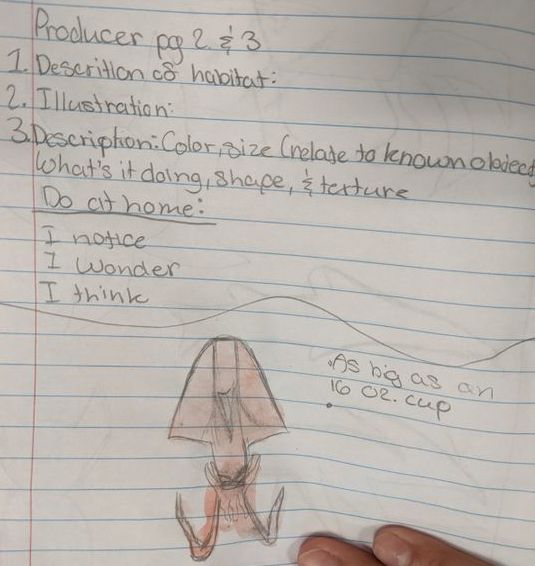 Producer pg 2 & 3
1. Descrition of habitat:
2. Illustration:
3. Description: Color, size (relate to known object
What's it doing, shape, & texture
Do at home:
I notice
I wonder
I think
. As big as an
16 oz. cup
.